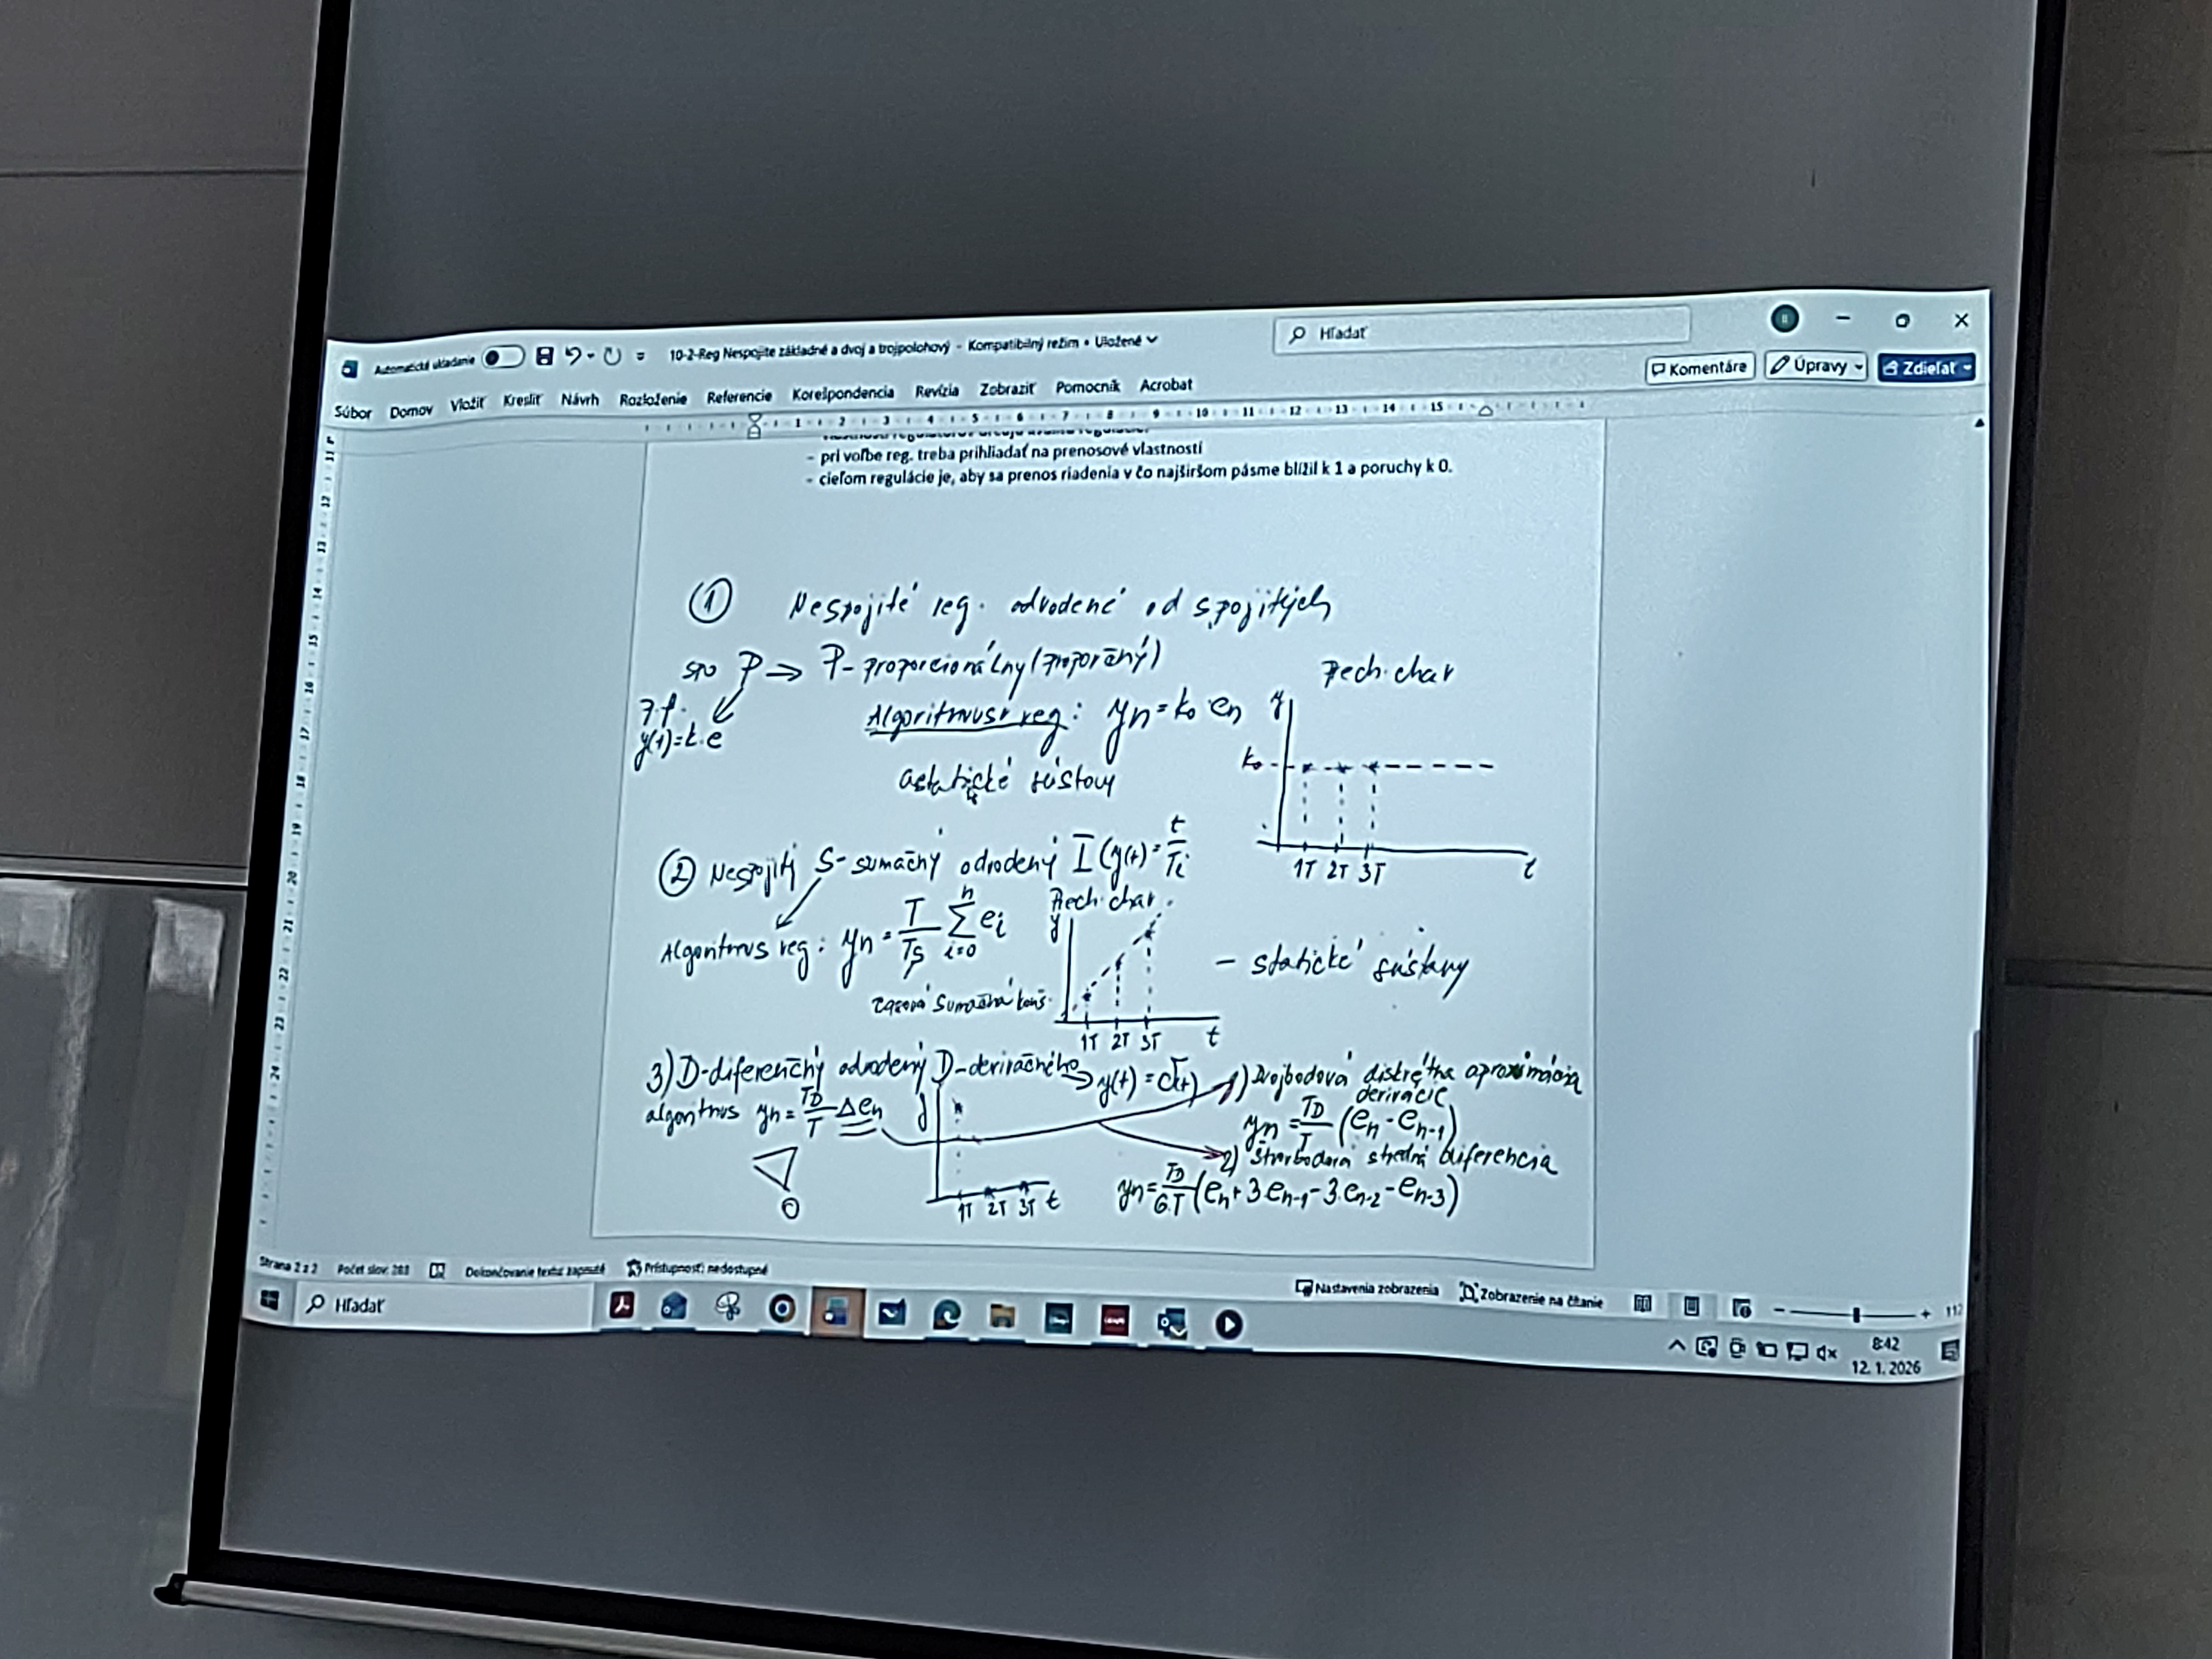 Automatické ukladanie
10-2-Reg Nespojite základné a dvoj a trojpolohový - Kompatibilný režim • Uložené
Hľadať
Súbor Domov Vložiť Kresliť Návrh Rozloženie Referencie Korešpondencia Revízia Zobraziť Pomocník Acrobat
Komentáre Úpravy Zdieľať
1 2 3 4 5 6 7 8 9 10 11 12 13 14 15
- pri voľbe reg. treba prihliadať na prenosové vlastnosti
- cieľom regulácie je, aby sa prenos riadenia v čo najširšom pásme blížil k 1 a poruchy k 0.
① Nespojité reg. odvodené od spojitých
P ⇒ P-proporcionálny
Prech. char
y(t)=k.e
Algoritmus reg: yn = ko en
y
ko
astatické sústavy
1T 2T 3T t
② Nespojitý S-sumačný odvodený I (y(t) = t/Ti
Prech. char.
Algoritmus reg: yn = T/Ts ∑ i=0 n ei
y
- statické sústavy
časová sumačná konš.
1T 2T 3T t
3) D-diferenčný odvodený D-derivačného → y(t) = δ(t)
1) Dvojbodová diskrétna aproximácia derivácie
algoritmus yn = TD/T Δen
y
yn = TD/T (en - en-1)
2) štvorbodová stredná diferencia
yn = TD/6.T (en + 3.en-1 - 3.en-2 - en-3)
1T 2T 3T t
Strana 2 z 2 Počet slov: 283 Dokončovanie textu: zapnuté Prístupnosť: nedostupné
Nastavenia zobrazenia Zobrazenie na čítanie
Hľadať
8:42
12. 1. 2026